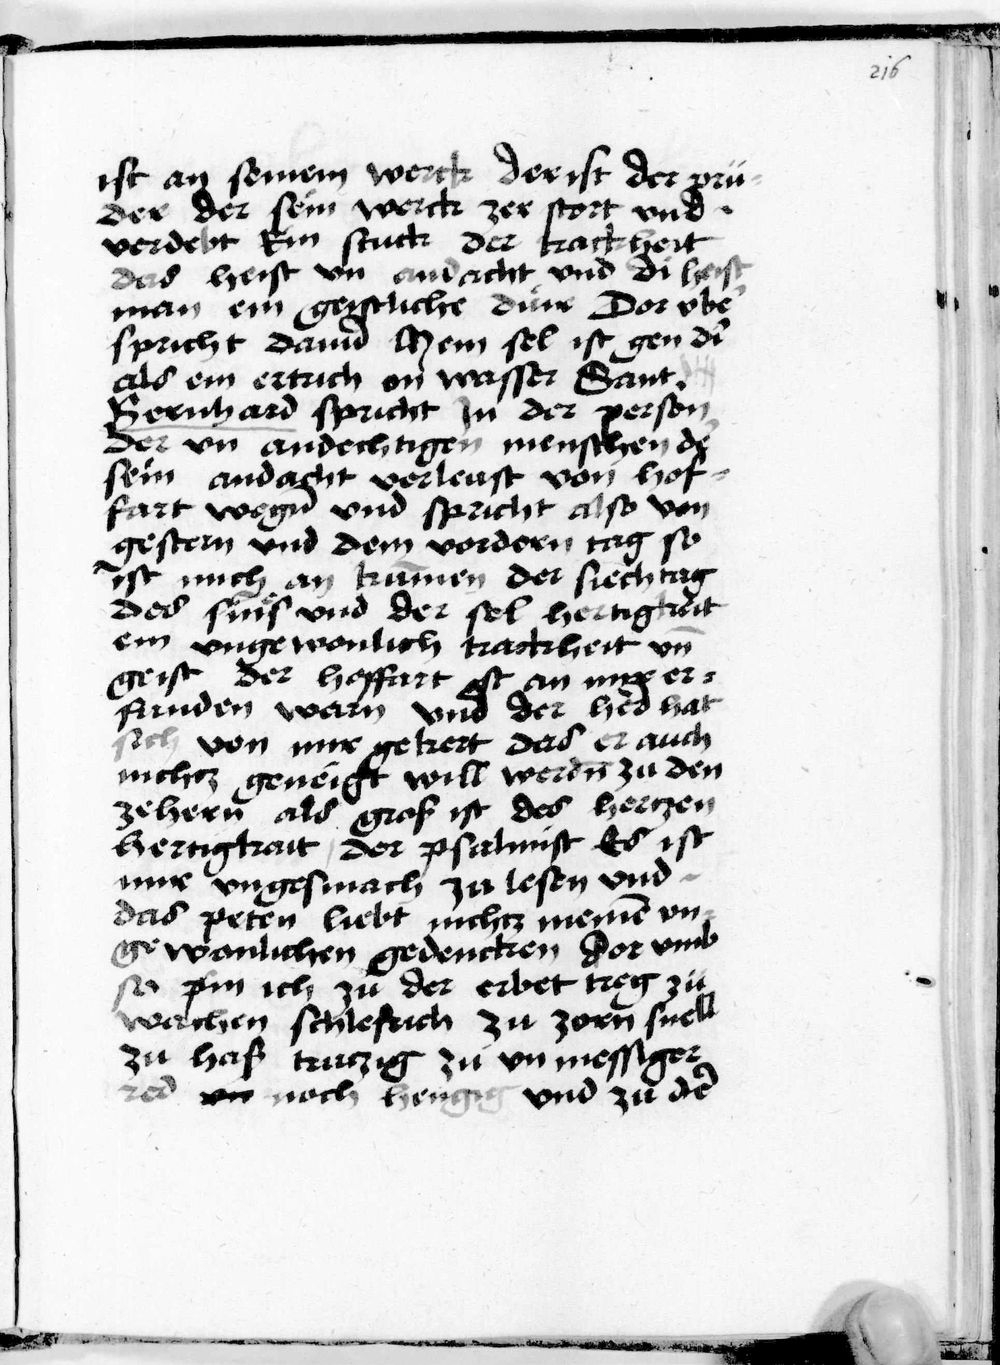 216
ist an seinem werck der ist der prü-
der der sein werck zer stort vnd
verdebt Ein stuck der trackheit
das heist vn andacht vnd di heist
man ein geistliche dürr Dor vbe᷑
spricht dauid Mein sel ist gen dir
als ein ertrich on wasser Sant
Bernhard spricht In der person
der vn andechtigen menschen de᷑
sein andacht verleust von hof-
fart wegn̄ vnd spricht also von
gestern vnd dem vordern tag so
ist mich an kum̄en der siechtag
des sin̄s vnd der sel hertigkeit
ein vngewonlich trackheit vn̄
geist der hoffart ist an mir er-
funden warn vnd der herr hat
sich von mir gekert das er auch
nichtz geneigt will werdn̄ zu den
zehern als groß ist des hertzen
hertigkait der psalmist Es ist
mir vngesmach zu lesen vnd
das peten liebt nichtz meinē vn-
gewonlichen gedencken dor vmb
so pin ich zu der erbet treg zu
wachen schlefrich zu zorn snell
zu haß trutzig zu vn messiger
red noch hengig vnd zu de᷑